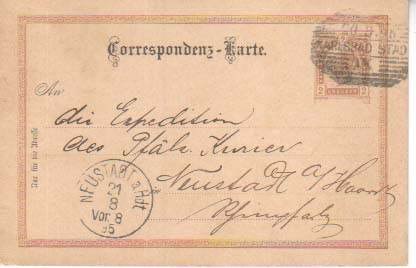 Correspondenz-Karte.
20 9 95
KARLSBAD STADT
2 KREUZER 2
An
die Expedition
des Pfälz. Kurier
Neustadt a/Haardt
Rheinpfalz
Nur für die Adresse
NEUSTADT a. Hdt
21
8
Vor. 8
95